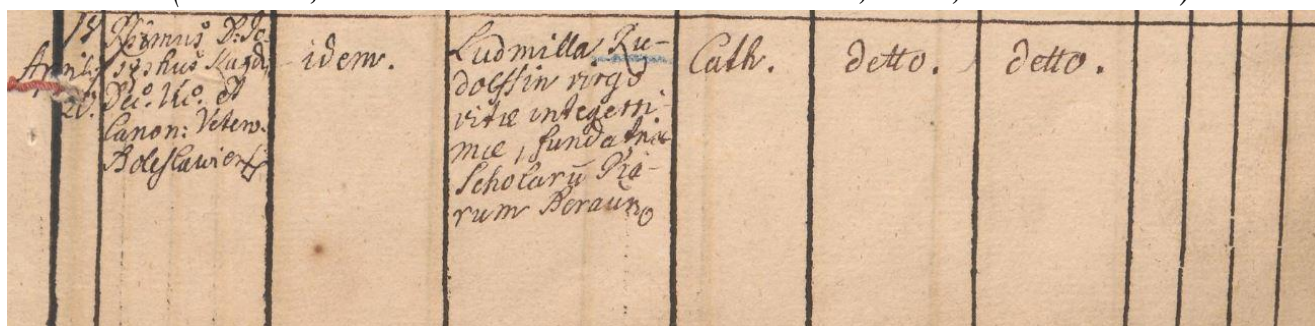 18
April:
20.
Rdmus D: Jo-
sephus
Dec: Vic: et
Canon: Veter.
Boleslawiens
idem.
Ludmilla Ru-
dolffin virgo
vitæ integerri-
mæ, fundatrix
Scholarū Pia-
rum Beraunæ
Cath.
detto.
detto.